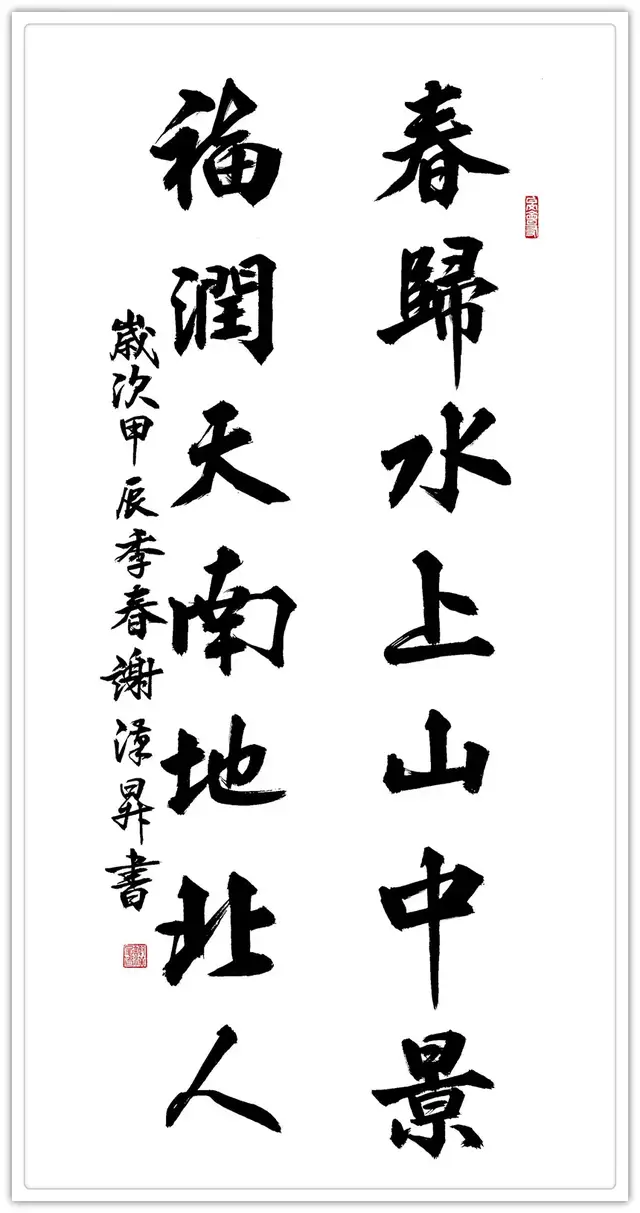 春歸水上山中景
福潤天南地北人
歲次甲辰季春謝澤昇書